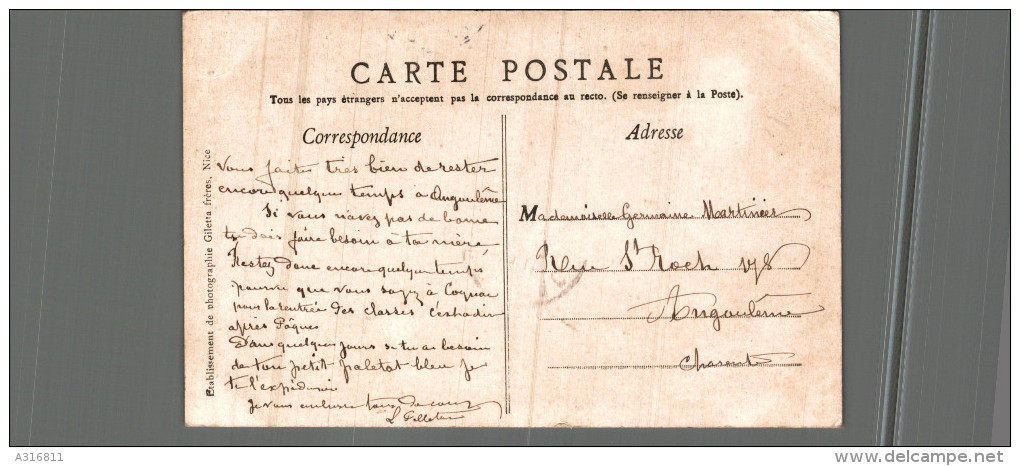 CARTE POSTALE
Tous les pays étrangers n'acceptent pas la correspondance au recto. (Se renseigner à la Poste).
Correspondance
Vous faites très bien de rester
encore quelques temps à Angoulême
Si vous n'avez pas de bonne
tu dois faire besoin à ta mère
Restez donc encore quelques temps
pourvu que vous soyez à Cognac
pour la rentrée des classes c'est-à-dire
après Pâques
Dans quelques jours si tu as besoin
de ton petit paletot bleu je
te l'expédierai
Je vous embrasse tous de cœur
Adresse
Mademoiselle Germaine
Rue St Roch
Angoulême
Charente
Etablissement de photographie Giletta frères, Nice
A316811
delcampe.net